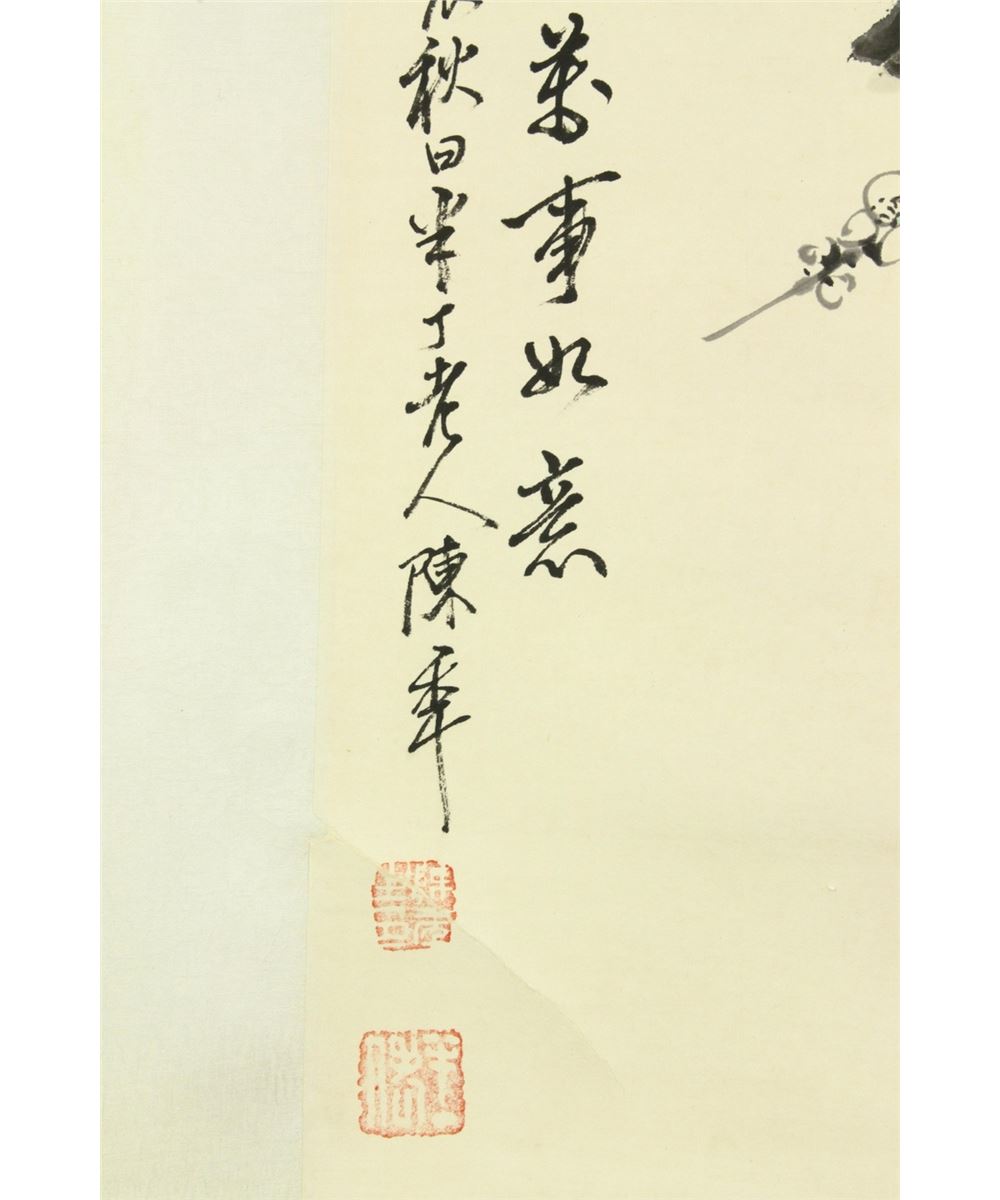 萬事如意
秋日半丁老人陳年